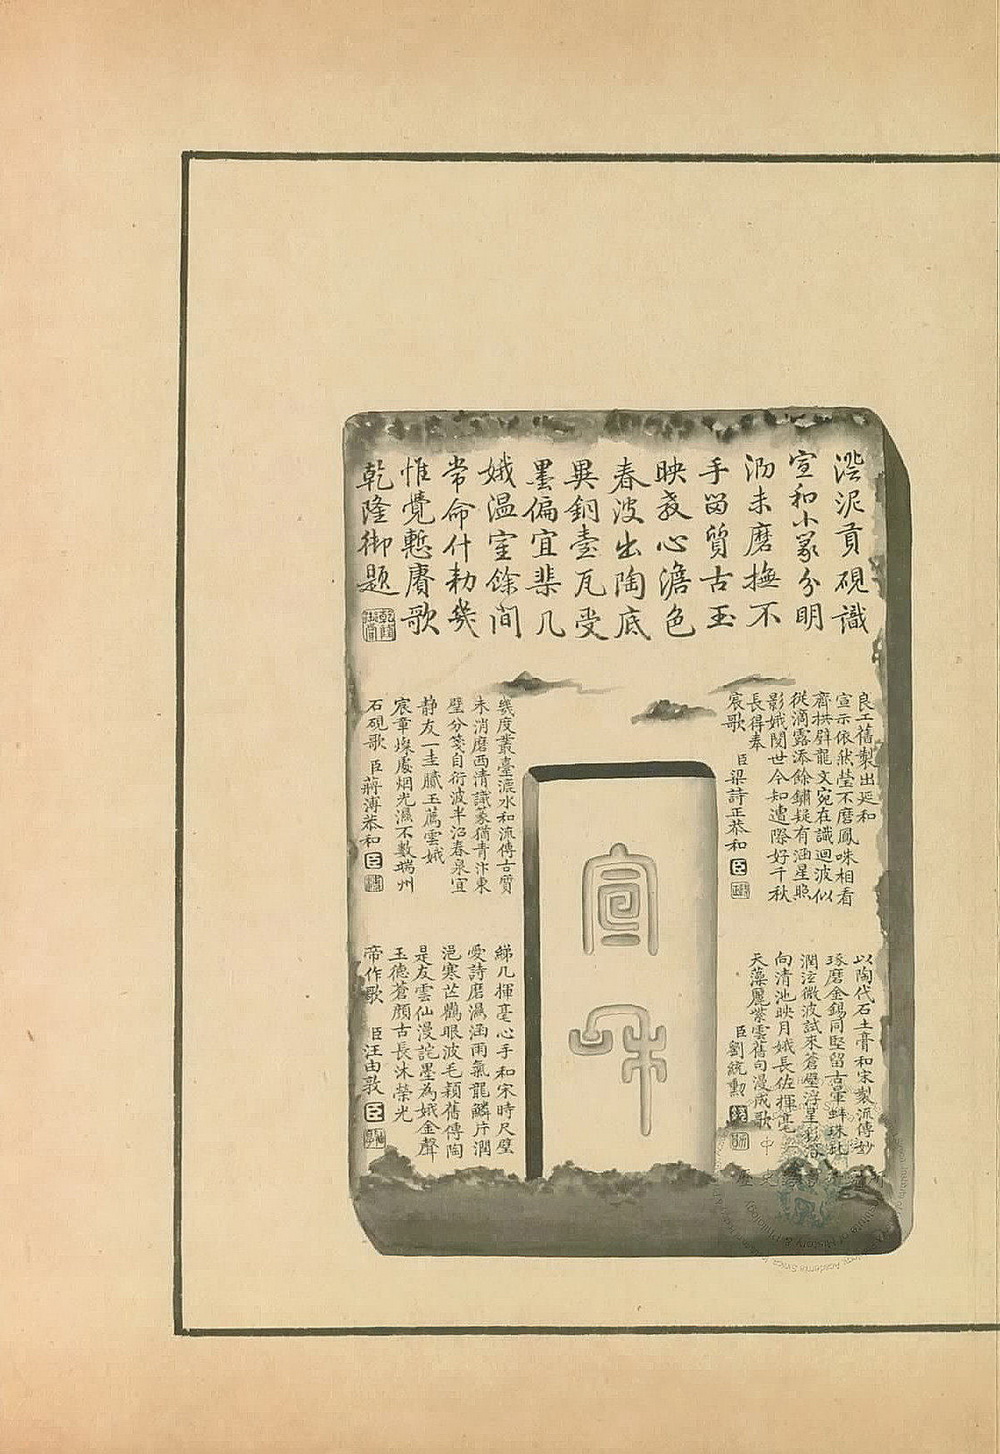 澄泥貢硯識
宣和小篆分明
泐未磨撫不
手留質古玉
映教心澹色
春波出陶底
異銅臺瓦受
墨偏宜棐几
娥溫室餘間
常命什勑幾
惟覺慙賡歌
乾隆御題
良工舊製出延和
宣示依然瑩不磨鳳咮相看
齊拱辟龍文宛在識迴波似
從滴露添餘鏽疑有涵星照
影娥閱世今知遭際好千秋
長得奉
宸歌 臣梁詩正恭和 臣
以陶代石土膏和宋製流傳妙
琢磨金錫同堅留古暈蚌珠比
潤泫微波試來蒼璧浮星
向清池映月娥長佐揮毫
天藻麗紫雲舊句漫成歌
臣劉統勳
宣和
幾度叢臺漉水和流傳古質
未消磨西清識篆猶青汴東
壁分箋自衍波半沼春泉宜
静友一圭膩玉薦雲娥
宸章煥處烟光濕不數端州
石硯歌 臣蔣溥恭和 臣
綈几揮毫心手和宋時尺璧
受詩磨濕涵雨氣龍鱗片潤
浥寒芒鸜眼波毛穎舊傳陶
是友雲仙漫詫墨為娥金聲
玉德蒼顏古長沐榮光
帝作歌 臣汪由敦 臣